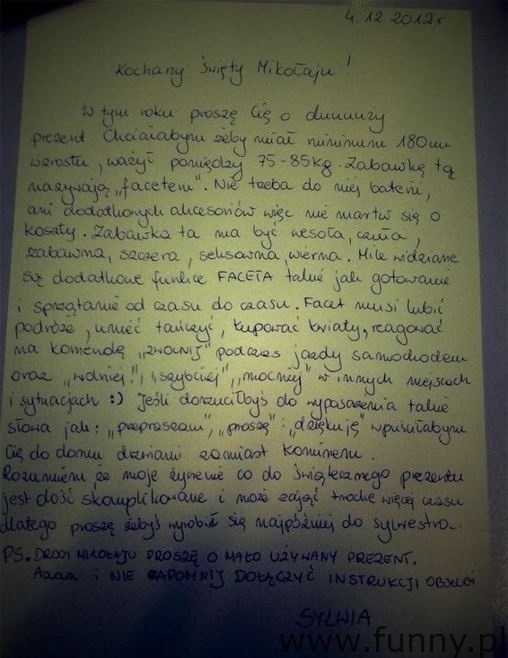 4.12.2012r
Kochany Święty Mikołaju!
W tym roku proszę Cię o duuuuży
prezent Chciałabym żeby miał minimum 180cm
wzrostu, ważył pomiędzy 75-85kg. Zabawkę tą
nazywają „facetem". Nie trzeba do niej baterii,
ani dodatkowych akcesoriów więc nie martw się o
koszty. Zabawka ta ma być wesoła, czuła,
zabawna, szczera, seksowna, wierna. Mile widziane
są dodatkowe funkcje FACETA takie jak gotowanie
i sprzątanie od czasu do czasu. Facet musi lubić
podróże, umieć tańczyć, kupować kwiaty, reagować
na komendę „zwolnij" podczas jazdy samochodem
oraz „wolniej", „szybciej", „mocniej" w innych miejscach
i sytuacjach :) Jeśli dorzuciłbyś do wyposażenia takie
słowa jak: „przepraszam", „proszę" i „dziękuję" wpuściłabym
Cię do domu drzwiami zamiast kominem.
Rozumiem, że moje życzenie co do świątecznego prezentu
jest dość skomplikowane i może zająć trochę więcej czasu
dlatego proszę żebyś wyrobił się najpóźniej do sylwestra.
PS. DROGI MIKOŁAJU PROSZĘ O MAŁO UŻYWANY PREZENT.
Aaaa i NIE ZAPOMNIJ DOŁĄCZYĆ INSTRUKCJI OBSŁUGI
SYLWIA
www.funny.pl